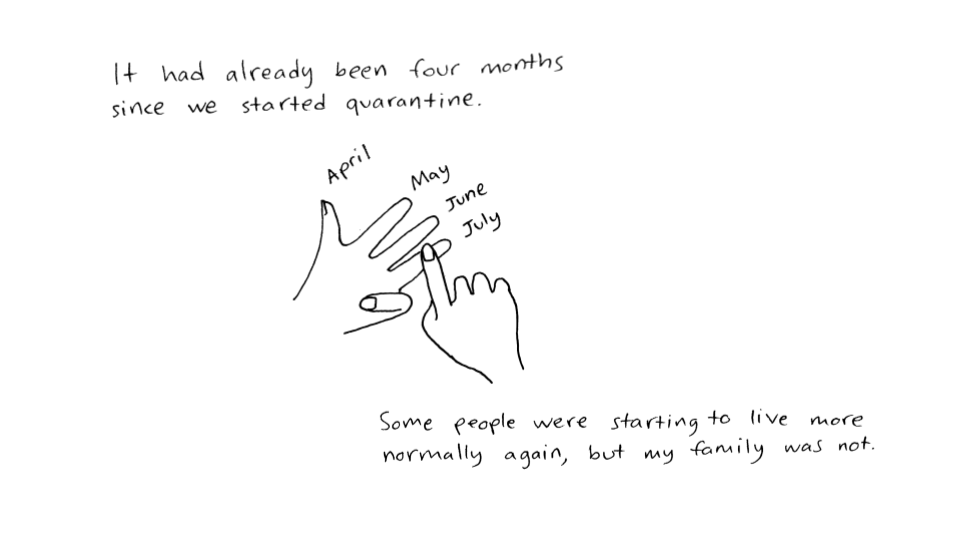 It had already been four months
since we started quarantine.
April
May
June
July
Some people were starting to live more
normally again, but my family was not.